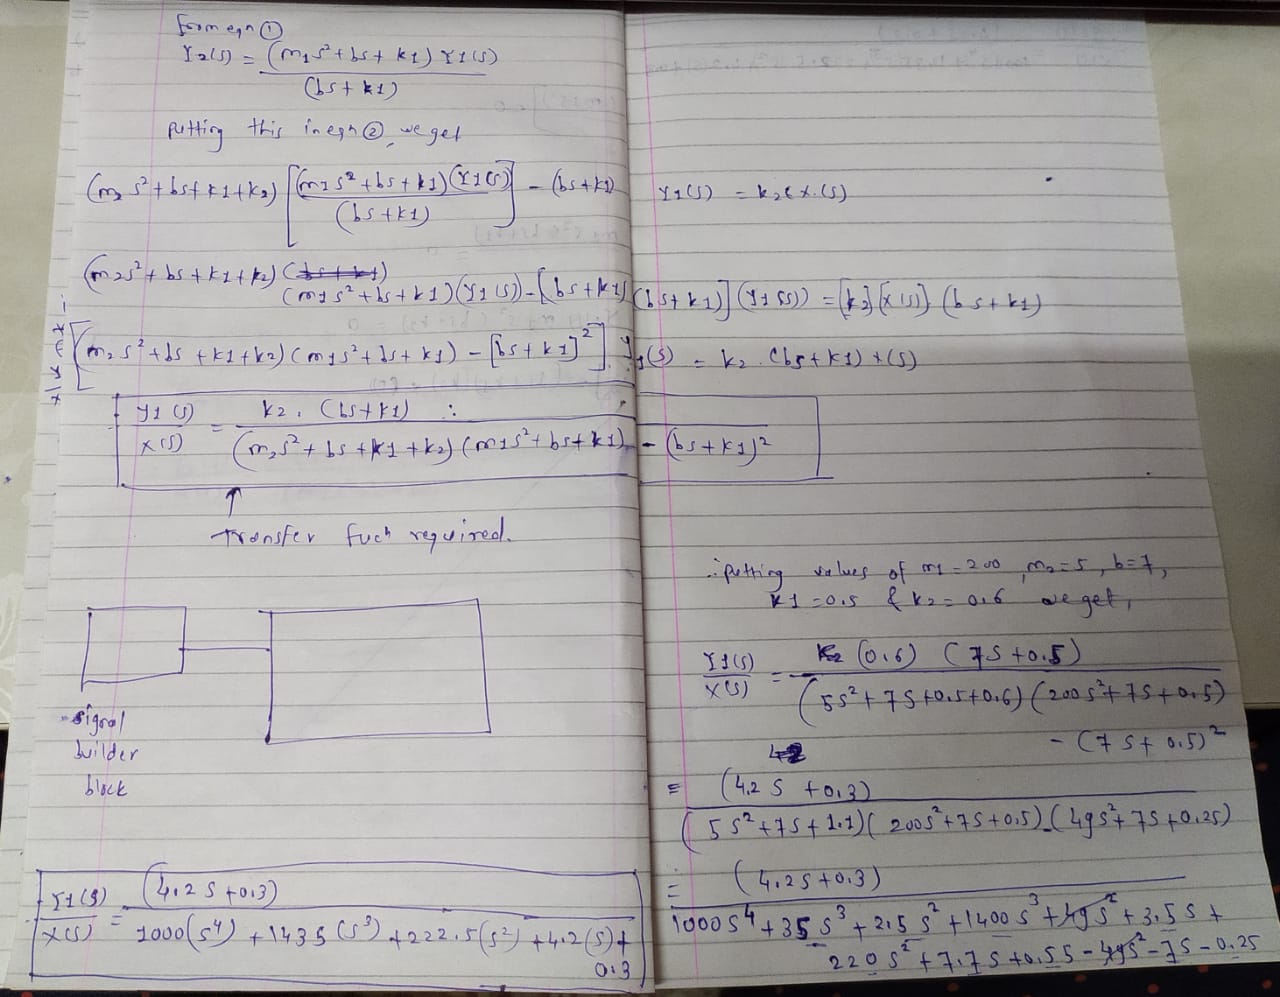 From eqn ①
Y2(s) = (m1s² + bs + k1) Y1(s)
(bs + k1)
putting this in eqn ②, we get
(m2 s² + bs + k1 + k2) [(m1s² + bs + k1)(Y1(s))] - (bs + k1) Y1(s) = k2(x.(s)
(bs + k1)
(m2s² + bs + k1 + k2) (bs + k1)
(m1s² + bs + k1)(Y1(s)) - [(bs + k1) (bs + k1)] (Y1(s)) = [k2] [x(s)] (bs + k1)
[(m2s² + bs + k1 + k2)(m1s² + bs + k1) - [bs + k1]²] Y1(s) = k2 . (bs + k1) x(s)
Y1(s) = k2 . (bs + k1) ∴
x(s) (m2s² + bs + k1 + k2)(m1s² + bs + k1) - (bs + k1)²
↑
Transfer fuch required.
signal
builder
block
∴ putting values of m1 = 200, m2 = 5, b = 7,
k1 = 0.5 & k2 = 0.6 we get,
Y1(s) = k2 (0.6) (7s + 0.5)
x(s) (5s² + 7s + 0.5 + 0.6)(200s² + 7s + 0.5)
- (7s + 0.5)²
42
= (4.2 s + 0.3)
(5s² + 7s + 1.1)(200s² + 7s + 0.5) - (49s² + 7s + 0.25)
= (4.2s + 0.3)
1000s⁴ + 35s³ + 2.5s² + 1400s³ + 49s² + 3.5s +
220s² + 7.7s + 0.55 - 49s² - 7s - 0.25
Y1(s) = (4.2s + 0.3)
x(s) 1000(s⁴) + 1435(s³) + 222.5(s²) + 4.2(s) +
0.3